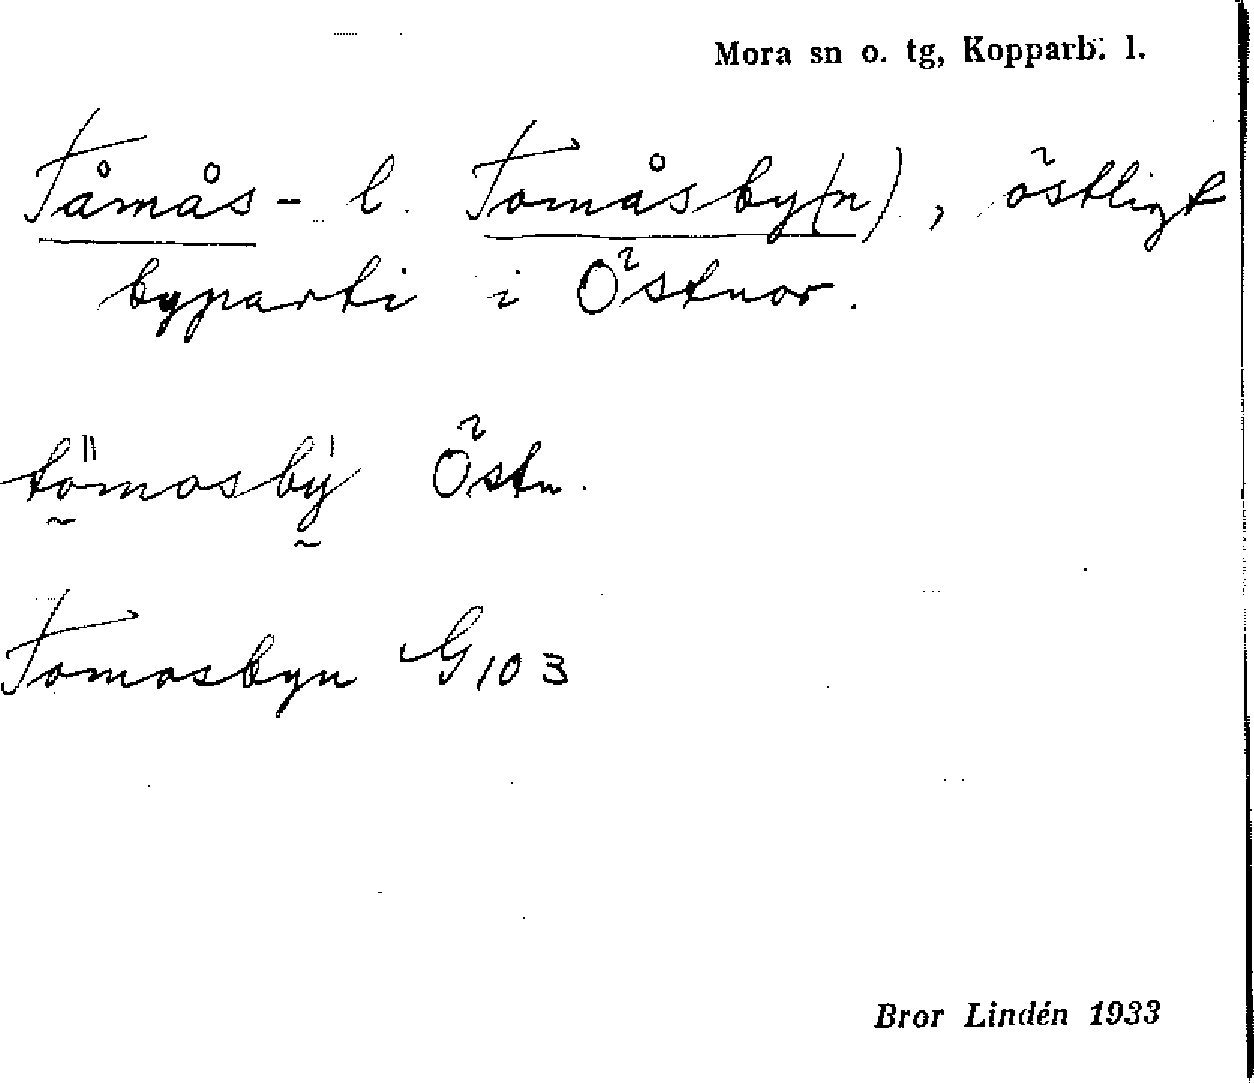 Mora sn o. tg, Kopparb. l.
Tåmås- l. Tomåsby(n), östligt
byparti i Östnor.
tömosby Östn.
Tomosbyn G103
Bror Lindén 1933